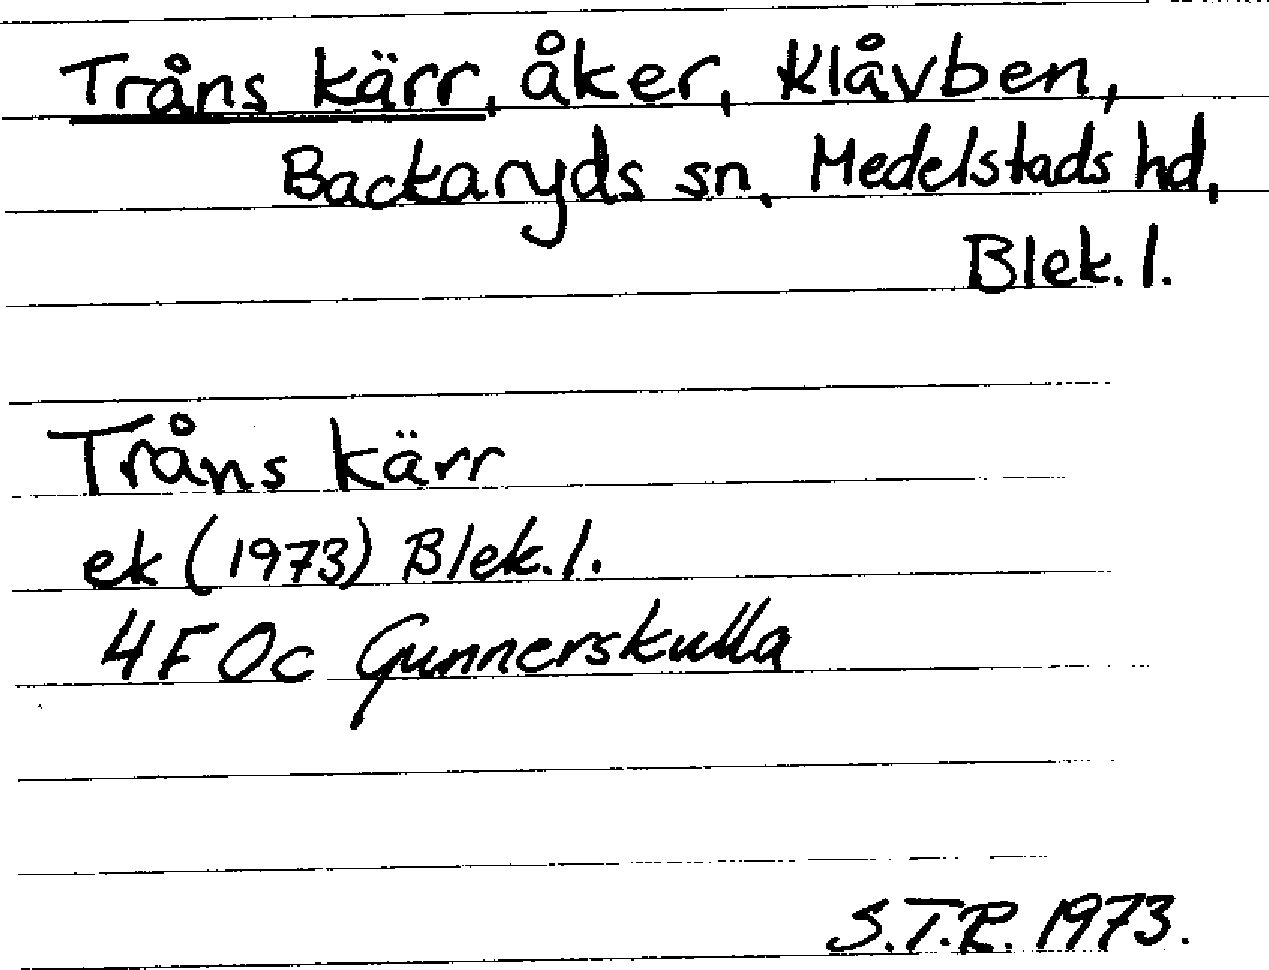 Tråns kärr, åker, Klåvben,
Backaryds sn, Medelstads hd,
Blek. l.
Tråns kärr
ek (1973) Blek. l.
4F Oc Gunnerskulla
S.T.R. 1973.